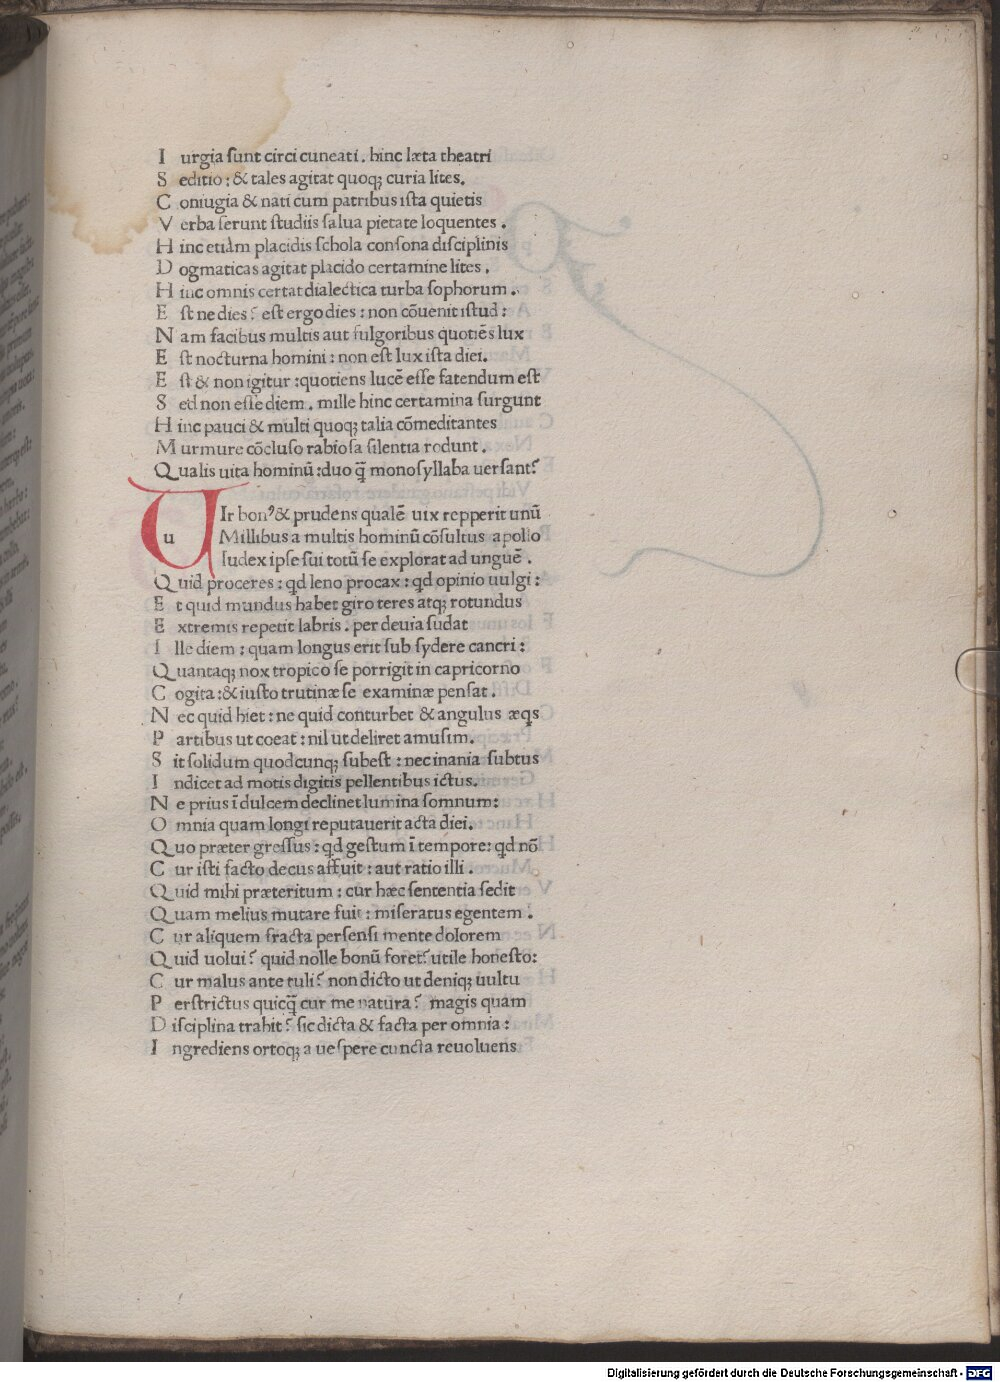 I urgia sunt circi cuneati. hinc læta theatri
S editio: & tales agitat quoqꝫ curia lites.
C oniugia & nati cum patribus ista quietis
V erba serunt studiis salua pietate loquentes.
H inc etiam placidis schola consona disciplinis
D ogmaticas agitat placido certamine lites.
H inc omnis certat dialectica turba sophorum.
E st ne dies? est ergo dies: non cōuenit istud:
N am facibus multis aut fulgoribus quotiēs lux
E st nocturna homini: non est lux ista diei.
E st & non igitur: quotiens lucē esse fatendum est
S ed non esse diem. mille hinc certamina surgunt
H inc pauci & multi quoqꝫ talia cōmeditantes
M urmure cōcluso rabiosa silentia rodunt.
Q ualis uita hominū: duo q̄ monosyllaba uersant?
u
UIr bonꝰ & prudens qualē uix repperit unū
Millibus a multis hominū cōsultus apollo
Iudex ipse sui totū se explorat ad unguē.
Q uid proceres: qd leno procax: qd opinio uulgi:
E t quid mundus habet giro teres atqꝫ rotundus
E xtremis repetit labris. per deuia sudat
I lle diem: quam longus erit sub sydere cancri:
Q uantaqꝫ nox tropico se porrigit in capricorno
C ogita: & iusto trutinæ se examinæ pensat.
N ec quid hiet: ne quid conturbet & angulus æqs
P artibus ut coeat: nil ut deliret amusim.
S it solidum quodcunqꝫ subest: nec inania subtus
I ndicet ad motis digitis pellentibus ictus.
N e prius ī dulcem declinet lumina somnum:
O mnia quam longi reputauerit acta diei.
Q uo præter gressus: qd gestum ī tempore: qd nō
C ur isti facto decus affuit: aut ratio illi.
Q uid mihi præteritum: cur hæc sententia sedit
Q uam melius mutare fuit: miseratus egentem.
C ur aliquem fracta persensi mente dolorem
Q uid uolui? quid nolle bonū foret? utile honesto:
C ur malus ante tuli? non dicto ut deniqꝫ uultu
P erstrictus quicq̄ cur me natura? magis quam
D isciplina trahit? sic dicta & facta per omnia:
I ngrediens ortoqꝫ a uespere cuncta reuoluens
Digitalisierung gefördert durch die Deutsche Forschungsgemeinschaft - DFG